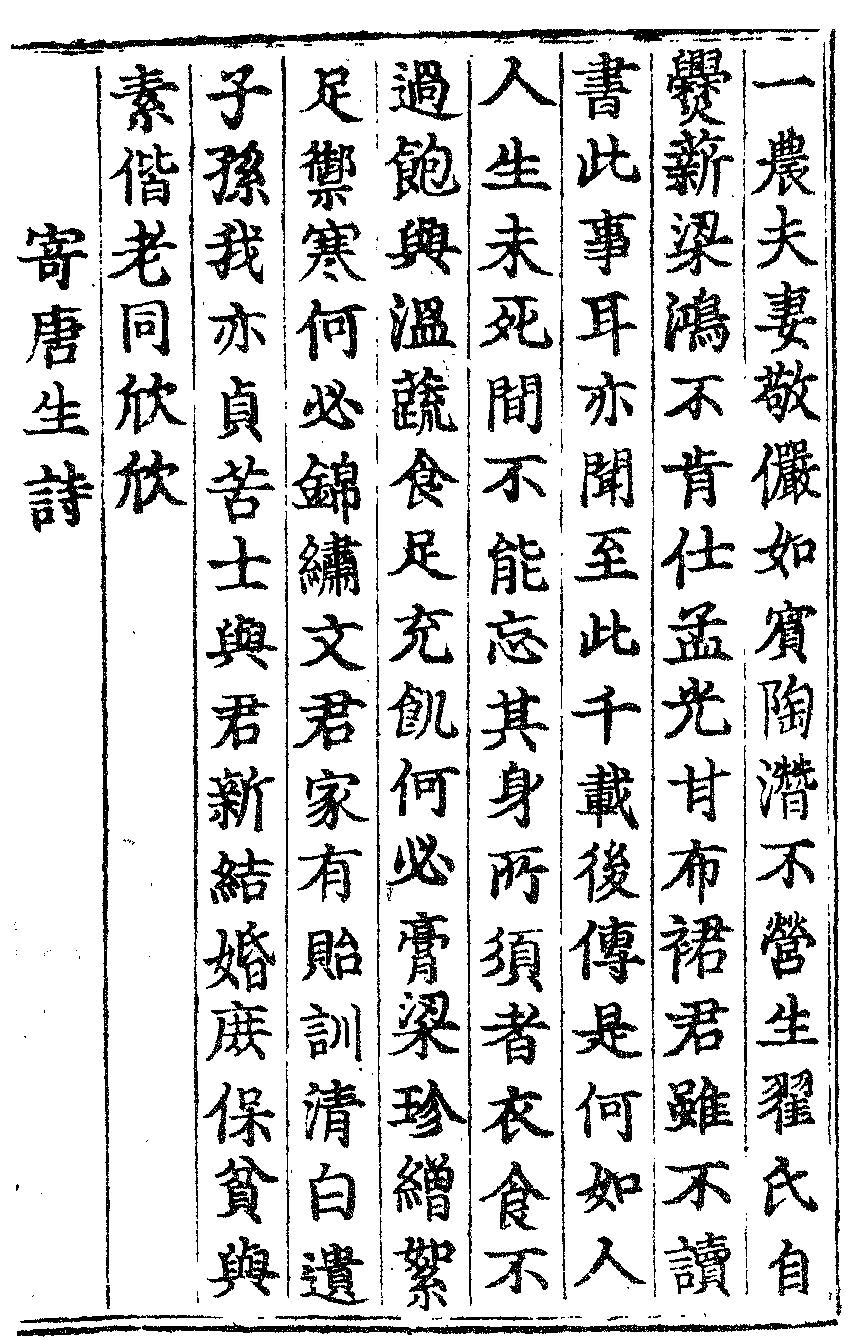 一農夫妻敬儼如賓陶潛不營生翟氏自
爨薪梁鴻不肯仕孟光甘布裙君雖不讀
書此事耳亦聞至此千載後傳是何如人
人生未死間不能忘其身所須者衣食不
過飽與溫蔬食足充飢何必膏粱珍繒絮
足禦寒何必錦繡文君家有貽訓清白遺
子孫我亦貞苦士與君新結婚庶保貧與
素偕老同欣欣
寄唐生詩